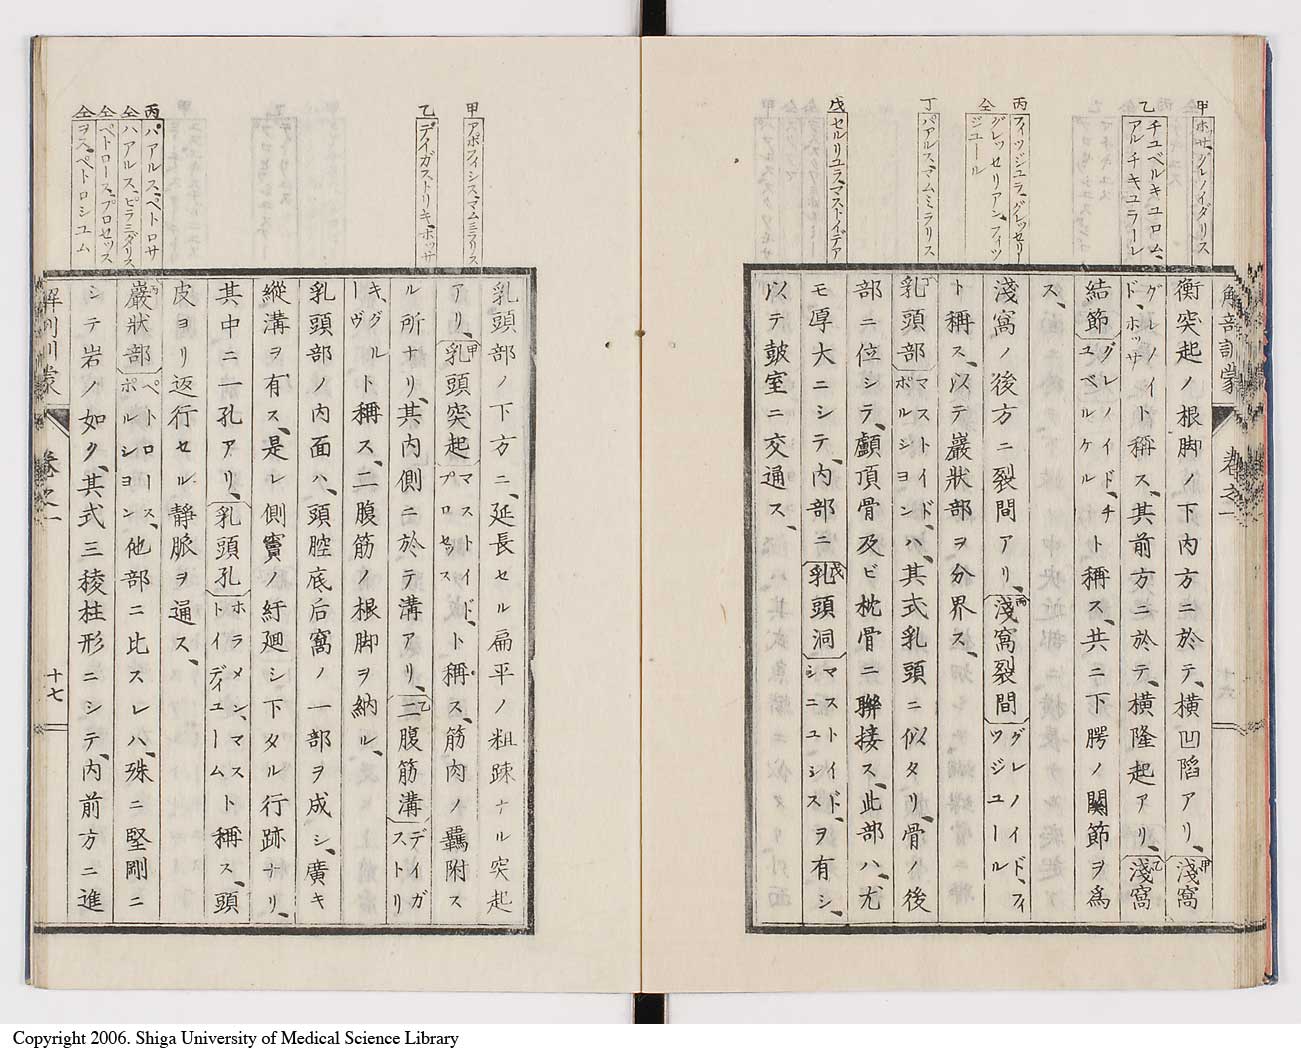 甲 ホッサ、グレノイダリス
乙 チュベルキュロム、
アルチキュラーレ
丙 フィッジュラ、グレッセリー
仝 グレッセリアン、フィッ
ジュール
丁 パアルス、マムミラリス
戊 セルリュラ、マストイデア
解剖訓蒙 卷之一 十六
衡突起ノ根脚ノ下内方ニ於テ、橫凹陷アリ、淺窩
グレノイド、ホッサト稱ス、其前方ニ於テ、橫隆起アリ、淺窩
結節グレノイド、チュベルケルト稱ス、共ニ下腭ノ關節ヲ爲
ス、
淺窩ノ後方ニ裂間アリ、淺窩裂間グレノイド、フィッジュール
ト稱ス、以テ巖狀部ヲ分界ス、
乳頭部マストイド、ポルションハ、其式乳頭ニ似タリ、骨ノ後
部ニ位シテ、顱頂骨及ビ枕骨ニ聯接ス、此部ハ、尤
モ厚大ニシテ、内部ニ、乳頭洞マストイド、シニュシスヲ有シ、
以テ鼓室ニ交通ス、
甲 アポフィシス、マムミラリス
乙 デイガストリキ、ホッサ
丙 パアルス、ペトロサ
仝 パアルス、ピラミダリス
仝 ペトロース、プロセッス
仝 ヲス、ペトロシユム
乳頭部ノ下方ニ、延長セル扁平ノ粗踈ナル突起
アリ、乳頭突起マストイド、プロセッスト稱ス、筋肉ノ羈附ス
ル所ナリ、其内側ニ於テ溝アリ、二腹筋溝デイガストリ
キ、グルーヴト稱ス、二腹筋ノ根脚ヲ納ル、
乳頭部ノ内面ハ、頭腔底后窩ノ一部ヲ成シ、廣キ
縱溝ヲ有ス、是レ側竇ノ紆廻シ下タル行跡ナリ、
其中ニ一孔アリ、乳頭孔ホラメン、マストイディユームト稱ス、頭
皮ヨリ返行セル靜脈ヲ通ス、
巖狀部ペトロース、ポルション他部ニ比スレハ、殊ニ堅剛ニ
シテ岩ノ如ク、其式三稜柱形ニシテ、内前方ニ進
解剖訓蒙 卷之一 十七
Copyright 2006. Shiga University of Medical Science Library